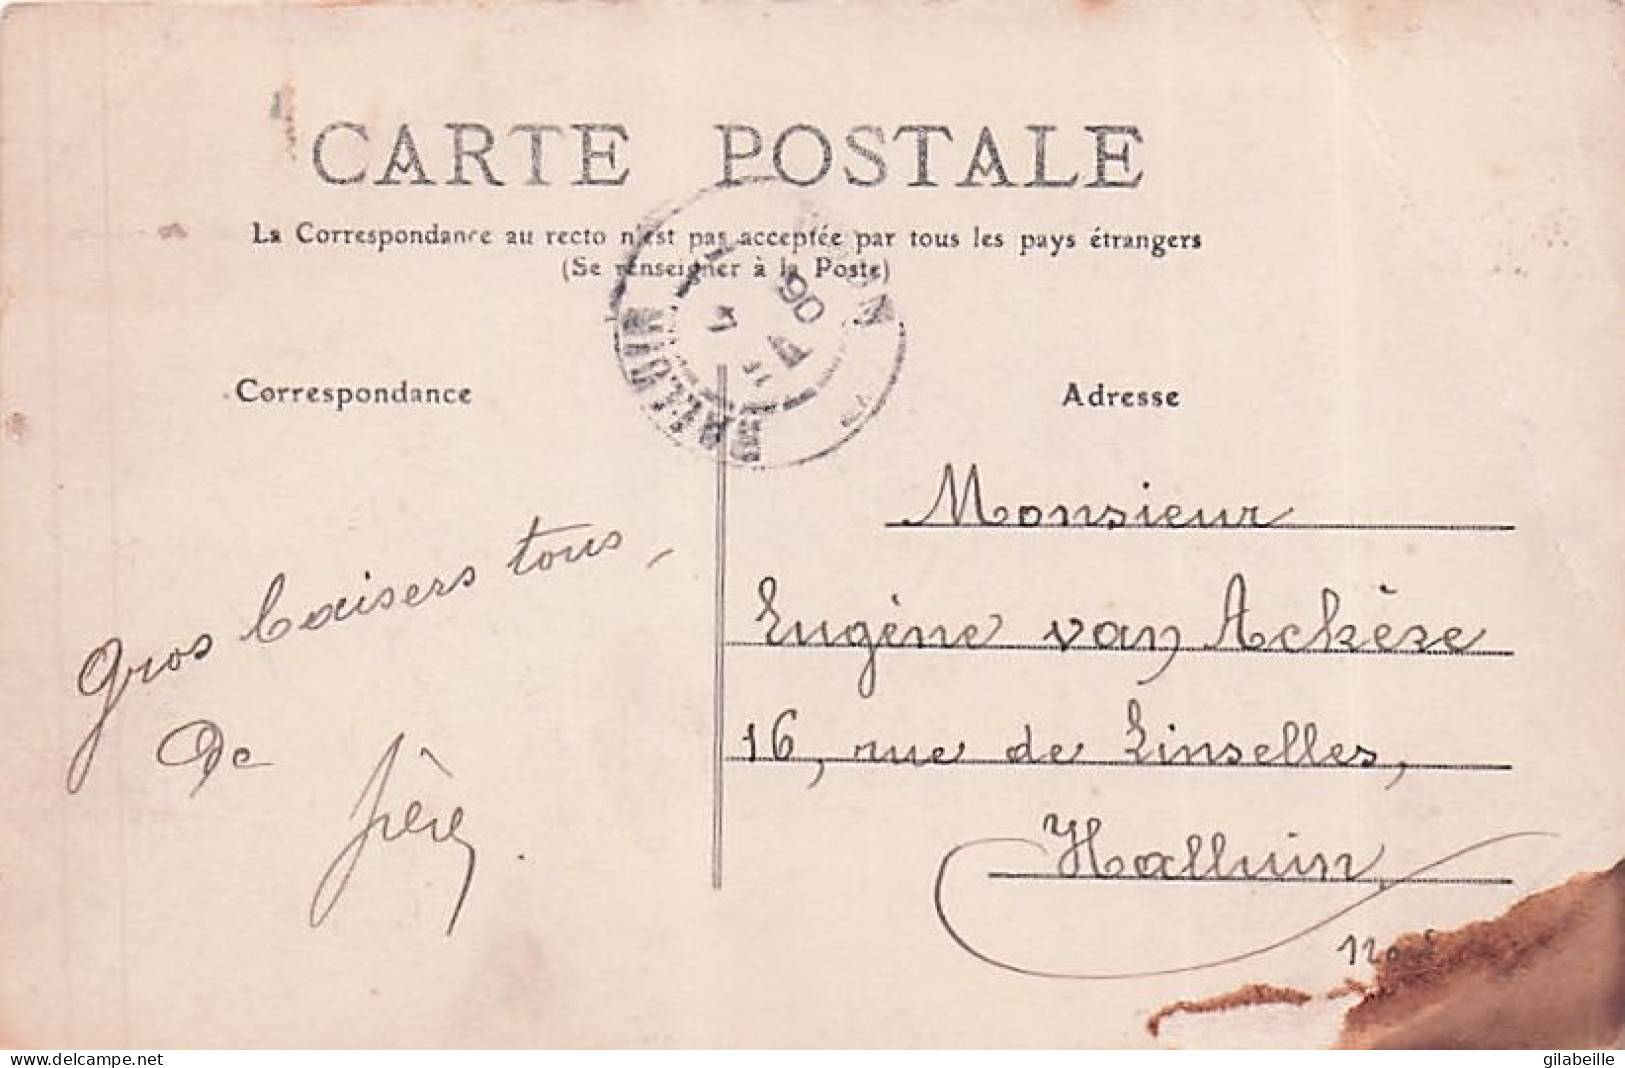 CARTE POSTALE
La Correspondance au recto n'est pas acceptée par tous les pays étrangers
(Se renseigner à la Poste)
Correspondance
Adresse
HALLUIN
06
gros baisers tous,
De
frère.
Monsieur
Eugène van Ackère
16, rue de Linselles,
Halluin
delcampe.net
gilabeille